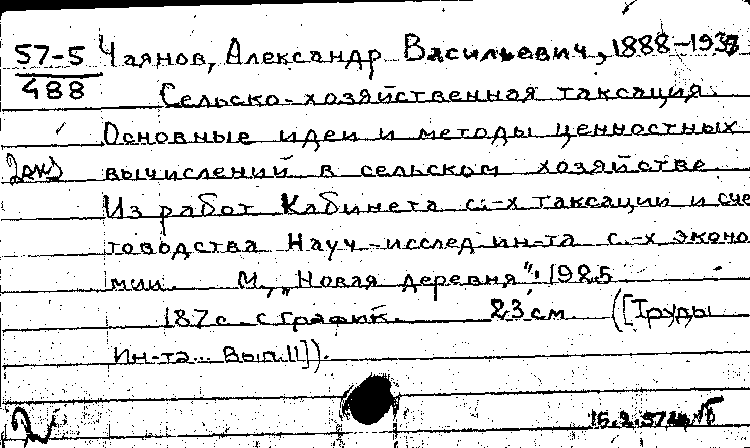 57-5 Чаянов, Александр Васильевич, 1888-193
488 Сельско-хозяйственная таксация.
Основные идеи и методы ценностных
2экз вычислений в сельском хозяйстве
Из работ Кабинета с.-х таксации и сче
товодства Науч-исслед ин-та с.-х эконо
мии. М., „Новая деревня", 1925
187 с. с график. 23 см. ([Труды
Ин-та... Вып. 11]).